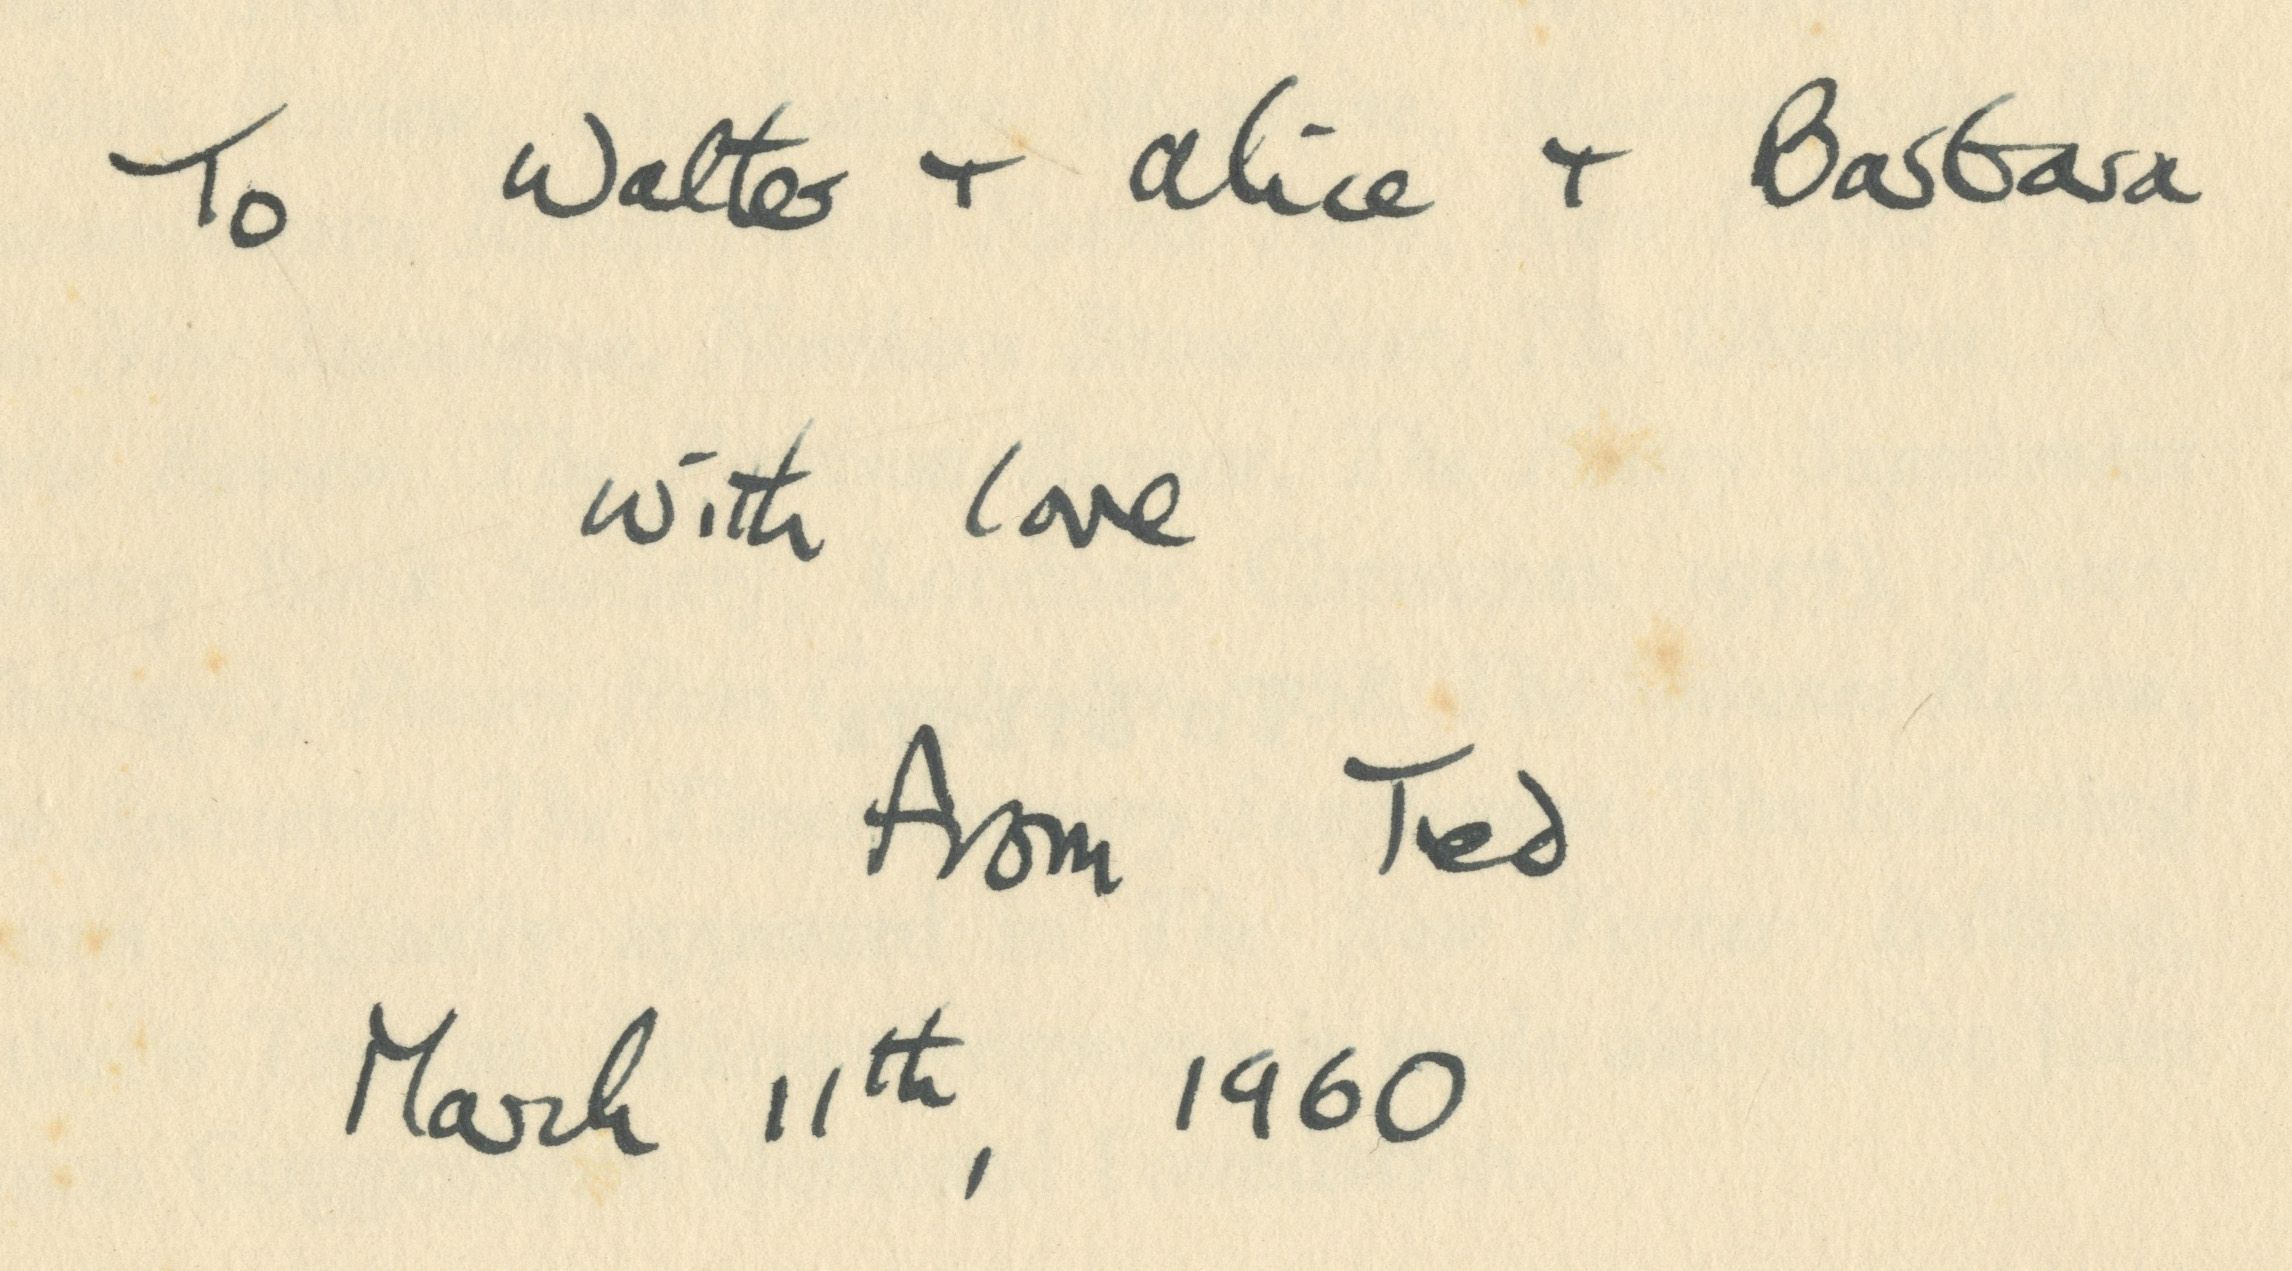 To Walter + Alice + Barbara
with love
from Ted
March 11th, 1960